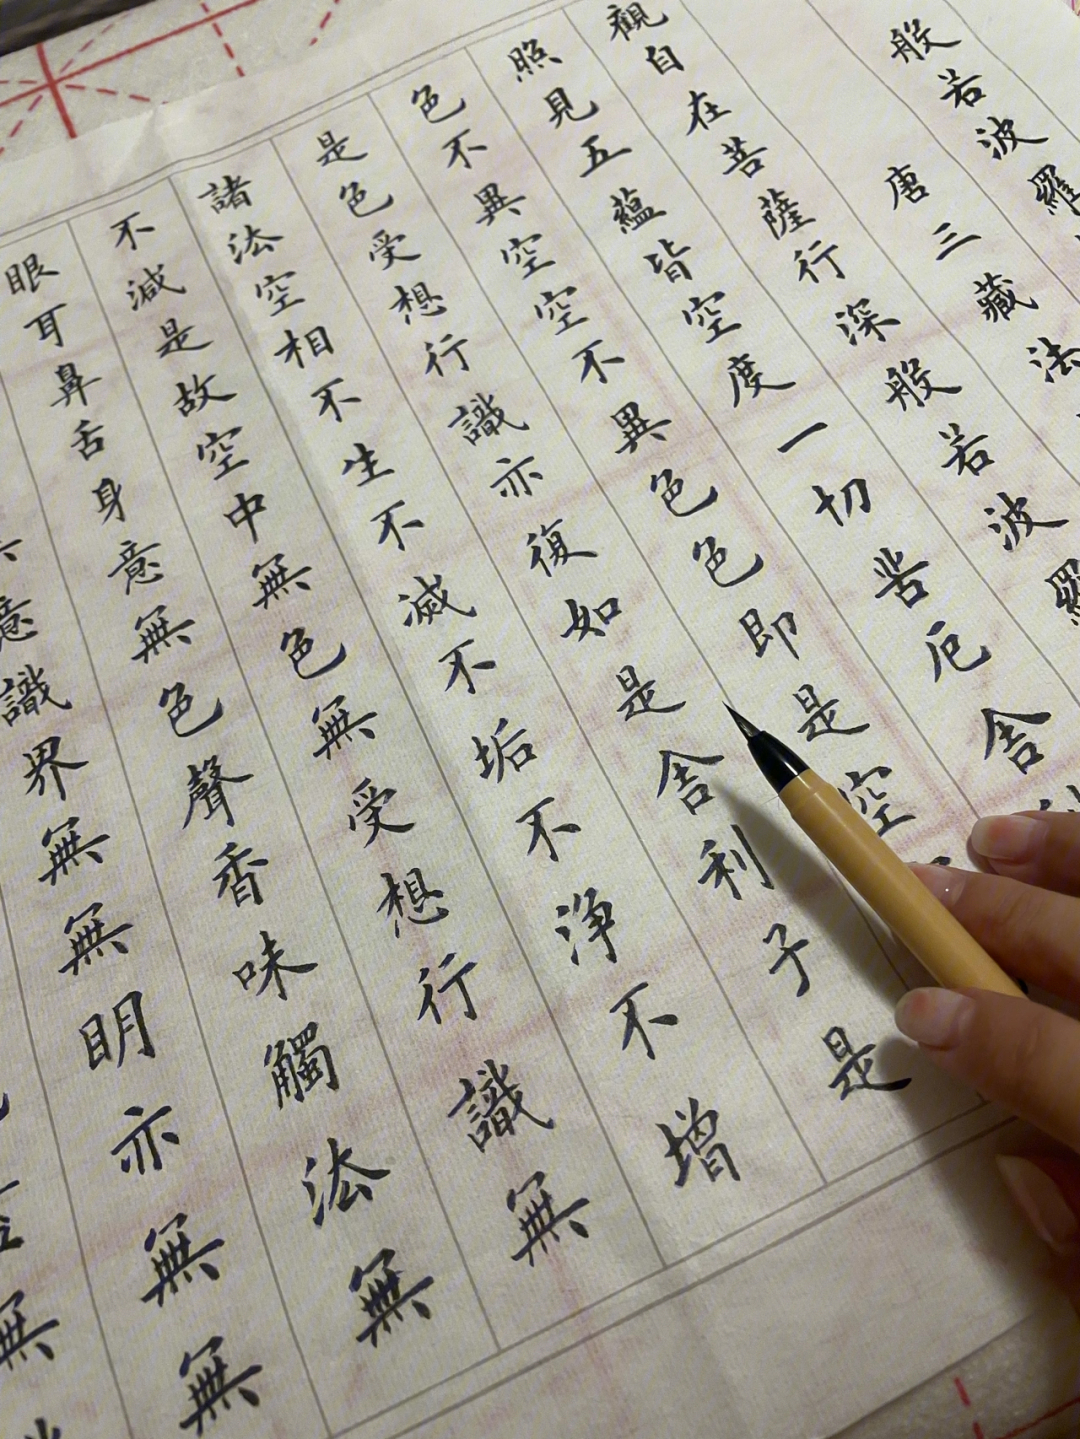 般若波羅
唐三藏法
觀自在菩薩行深般若波羅
照見五蘊皆空度一切苦厄舍利
色不異空空不異色色即是空
是色受想行識亦復如是舍利子是
諸法空相不生不滅不垢不淨不增
不減是故空中無色無受想行識無
眼耳鼻舌身意無色聲香味觸法無
意識界無無明亦無無
無